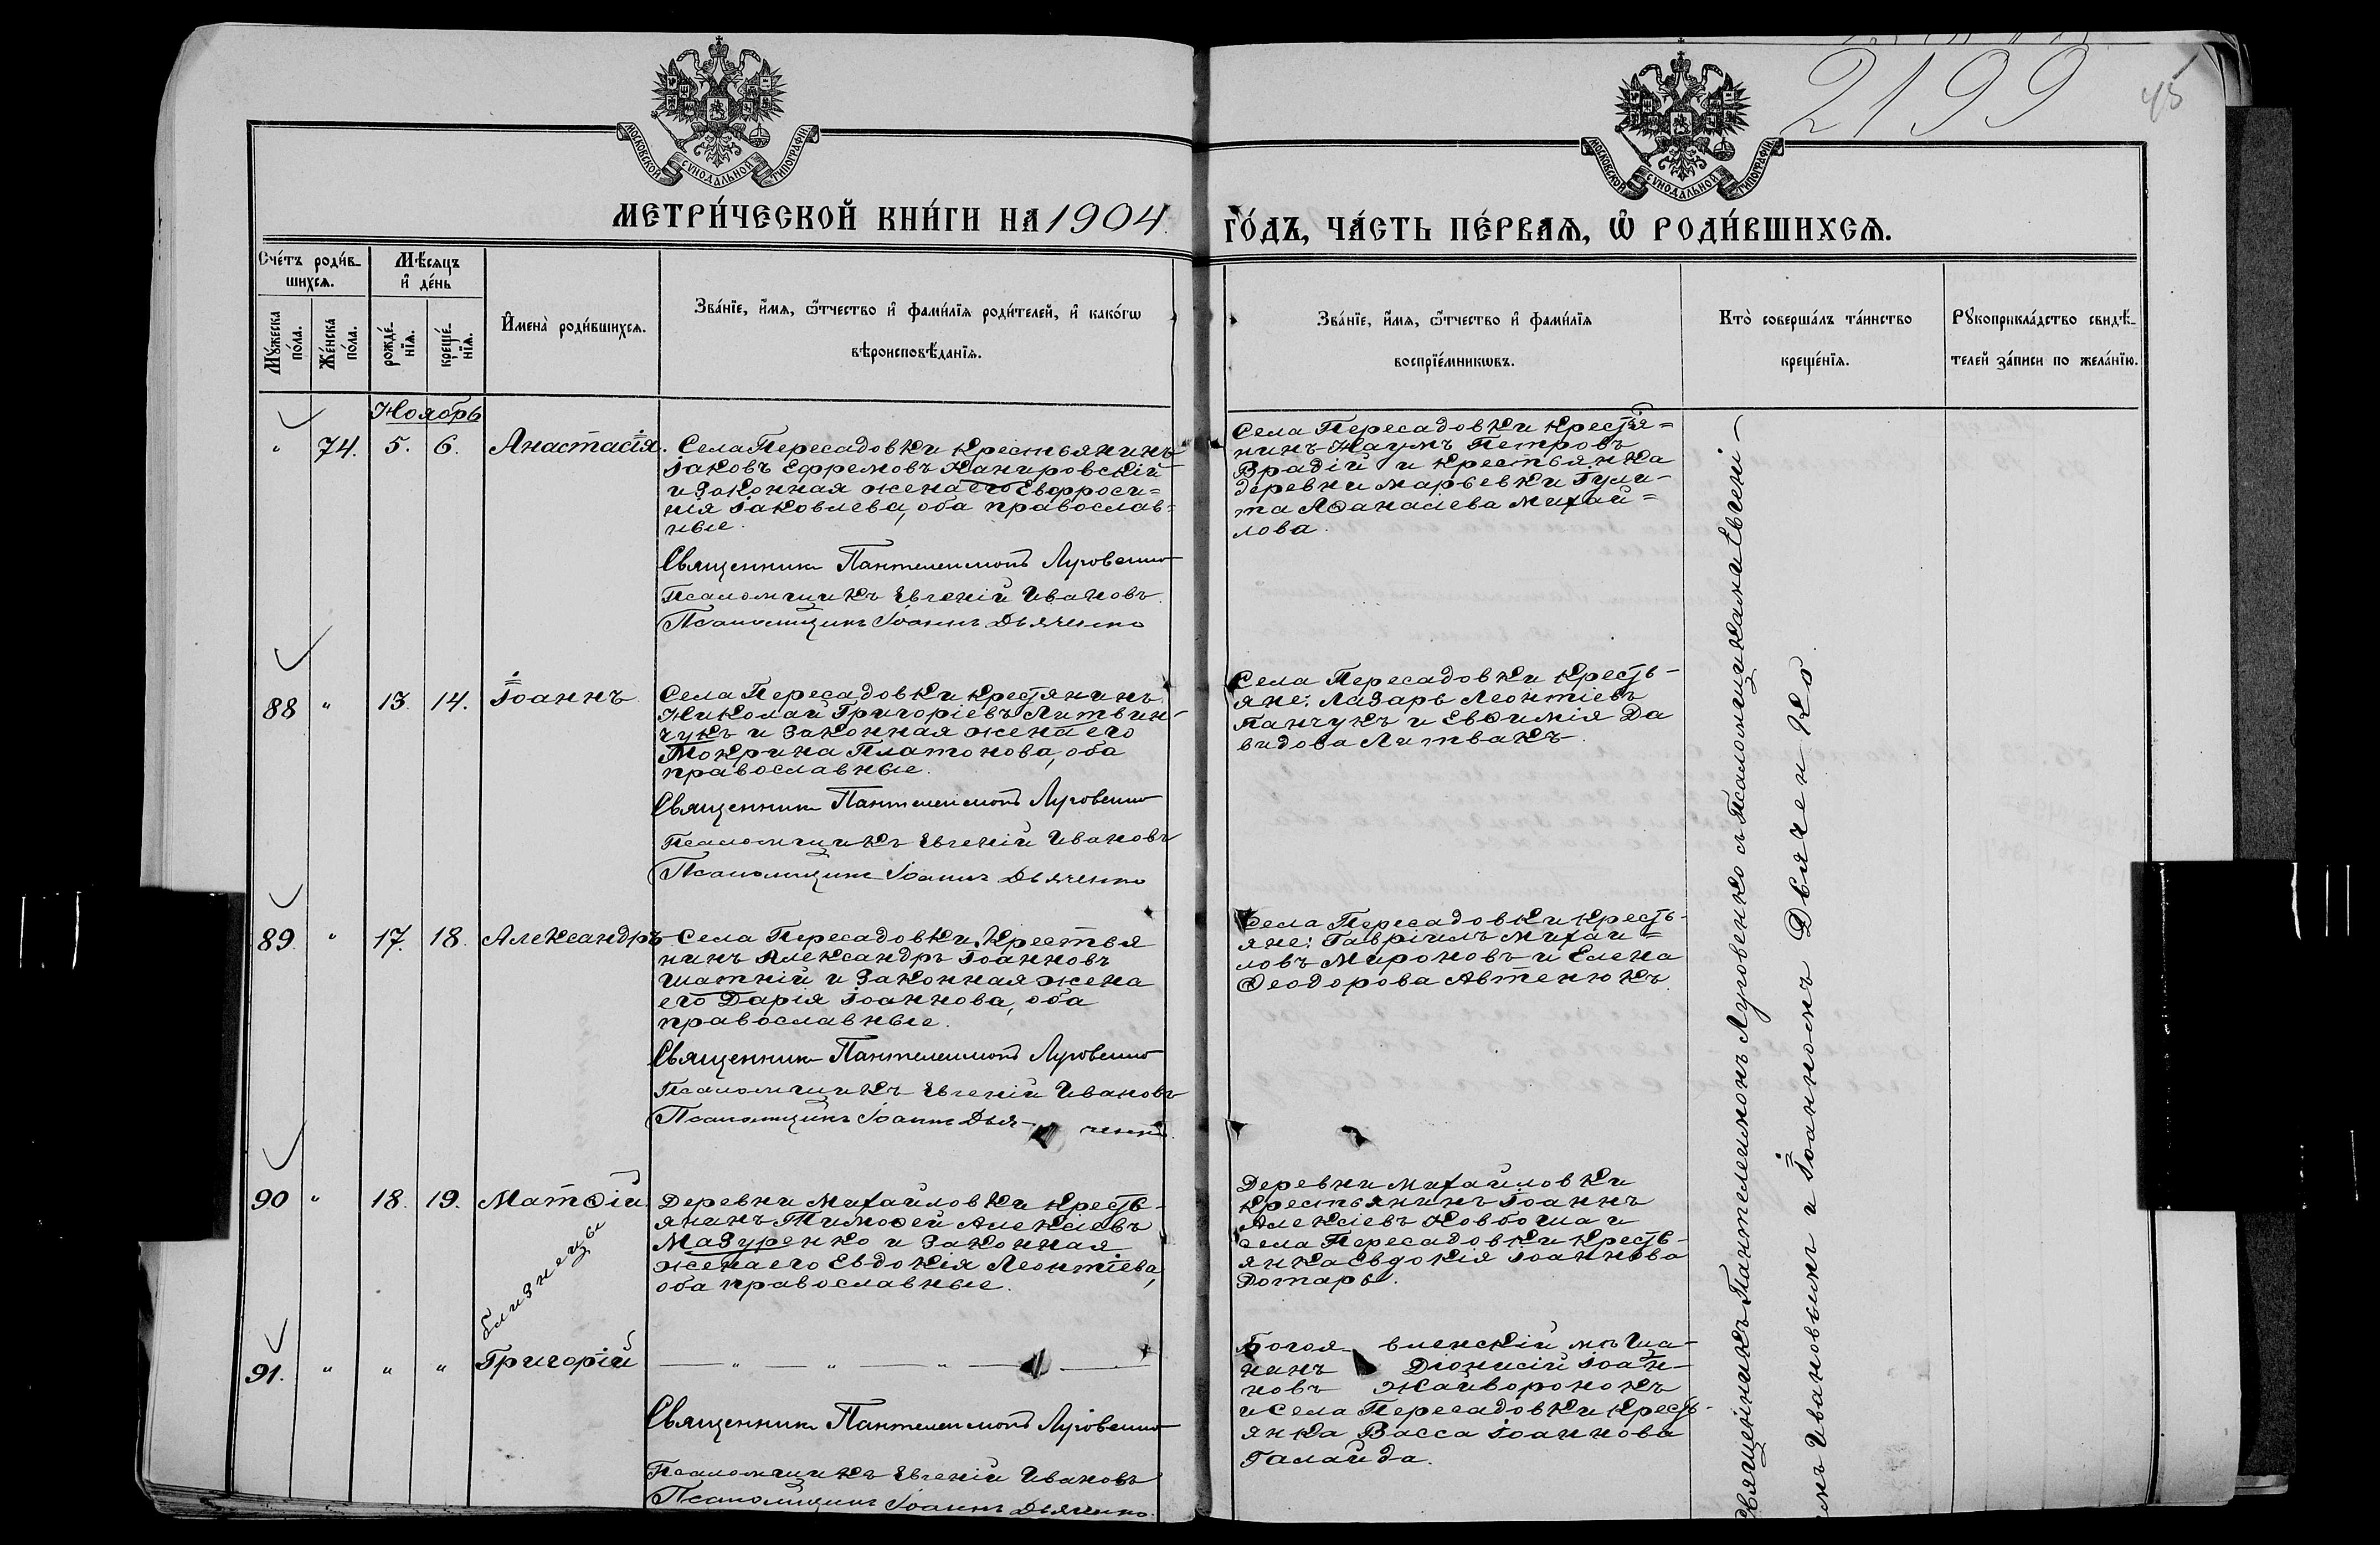 2199
45
МОСКОВСКОЙ СѴНОДАЛЬНОЙ ТИПОГРАФІИ
МОСКОВСКОЙ СѴНОДАЛЬНОЙ ТИПОГРАФІИ
МЕТРИ́ЧЕСКОЙ КНИ́ГИ НА 1904 ГО́ДЪ, ЧА́СТЬ ПЕ́РВАѦ, Ѡ҆ РОДИ́ВШИХСѦ.
Сче́тъ роди́в-
шихсѧ.
Мѣ́сѧцъ
и҆ де́нь
Мꙋ́жеска по́ла.
Же́нска по́ла.
рожде́-
нїѧ.
креще́-
нїѧ.
И҆мена̀ роди́вшихсѧ.
Зва́нїе, и҆́мѧ, ѻ҆́тчество и҆ фами́лїѧ роди́телей, и҆ како́гѡ
вѣроисповѣ́данїѧ.
Зва́нїе, и҆́мѧ, ѻ҆́тчество и҆ фами́лїѧ
воспрїе́мникѡвъ.
Кто̀ соверша́лъ та́инство
креще́нїѧ.
Рꙋкоприкла́дство свидѣ́-
телей за́писи по жела́нїю.
Ноябрь
" 74. 5. 6. Анастасія.
Села Пересадовки крестьянинъ
Іаковъ Ефремовъ Канировскій
и законная жена его Евфроси=
нія Іаковлева, оба православ=
ные.
Священникъ Пантелеимонъ Луговенко
Псаломщикъ Евгеній Ивановъ
Псаломщикъ Іоаннъ Дьяченко
Села Пересадовки крестья=
нинъ Наумъ Петровъ
Врадій и крестьянка
деревни Марьевки Гули-
та Аѳанасіева Михай=
лова.
88 " 13. 14. Іоаннъ
Села Пересадовки крестянинъ
Николай Григоріевъ Литвин-
чукъ и законная жена его
Мокрина Платонова, оба
православные.
Священникъ Пантелеимонъ Луговенко
Псаломщикъ Евгеній Ивановъ
Псаломщикъ Іоаннъ Дьяченко
Села Пересадовки кресть-
яне: Лазарь Леонтіевъ
Панчукъ и Евѳимія Да
видова Литвакъ.
89. " 17. 18. Александръ
Села Пересадовки крестья
нинъ Александръ Іоанновъ
Шатній и законная жена
его Дарія Іоаннова, оба
православные.
Священникъ Пантелеимонъ Луговенко
Псаломщикъ Евгеній Ивановъ
Псаломщикъ Іоаннъ Дья- ченко.
Села Пересадовки кресть-
яне: Гавріилъ Михаи=
ловъ Мироновъ и Елена
Ѳеодорова Автенюкъ.
90 " 18. 19. Матѳій
близнецы
Деревни Михайловки кресть-
янинъ Тимоѳей Алексіевъ
Мазуренко и законная
жена его Евдокія Леонтіева,
оба православные.
Деревни Михайловки
крестьянинъ Іоаннъ
Алексіевъ Ковбоша и
села Пересадовки кресть-
янка Евдокія Іоаннова
Ротарь.
91. " " " Григорій
— " — " — " — —
Священникъ Пантелеимонъ Луговенко
Псаломщикъ Евгеній Ивановъ
Псаломщикъ Іоаннъ Дьяченко.
Богоя- вленскій мѣща-
нинъ Діонисій Іоан-
новъ Жайворонокъ
и села Пересадовки кресть-
янка Васса Іоаннова
Галайда.
Священникъ Пантелеимонъ Луговенко съ Псаломщиками Евгені-
емъ Ивановымъ и Іоанномъ Дьяченко.